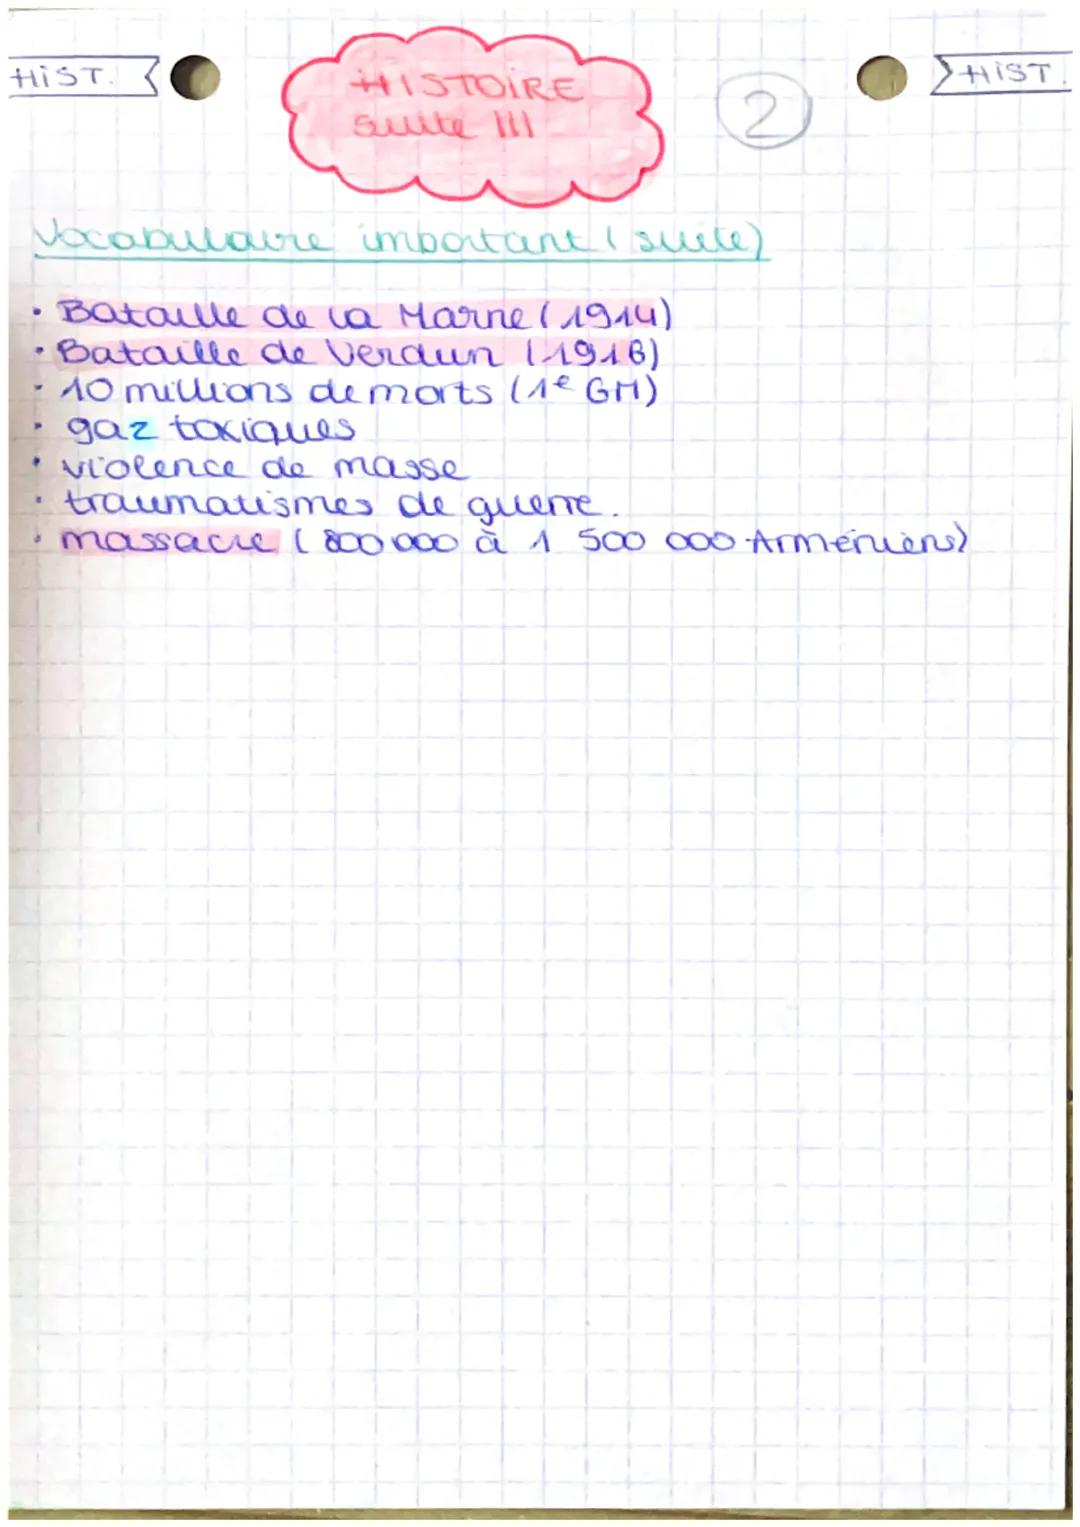 HIST.
HISTOIRE
suite III
2
HIST.
Vocabulaire important (suite)
• Bataille de la Marne (1914)
• Bataille de Verdun (1916)
• 10 millions de morts (1e GM)
• gaz toxiques
• violence de masse
• traumatismes de guerre.
• massacre (800 000 à 1 500 000 Arméniens)